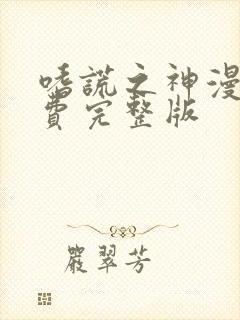 嗜謊之神漫
費完整版
嚴翠芳